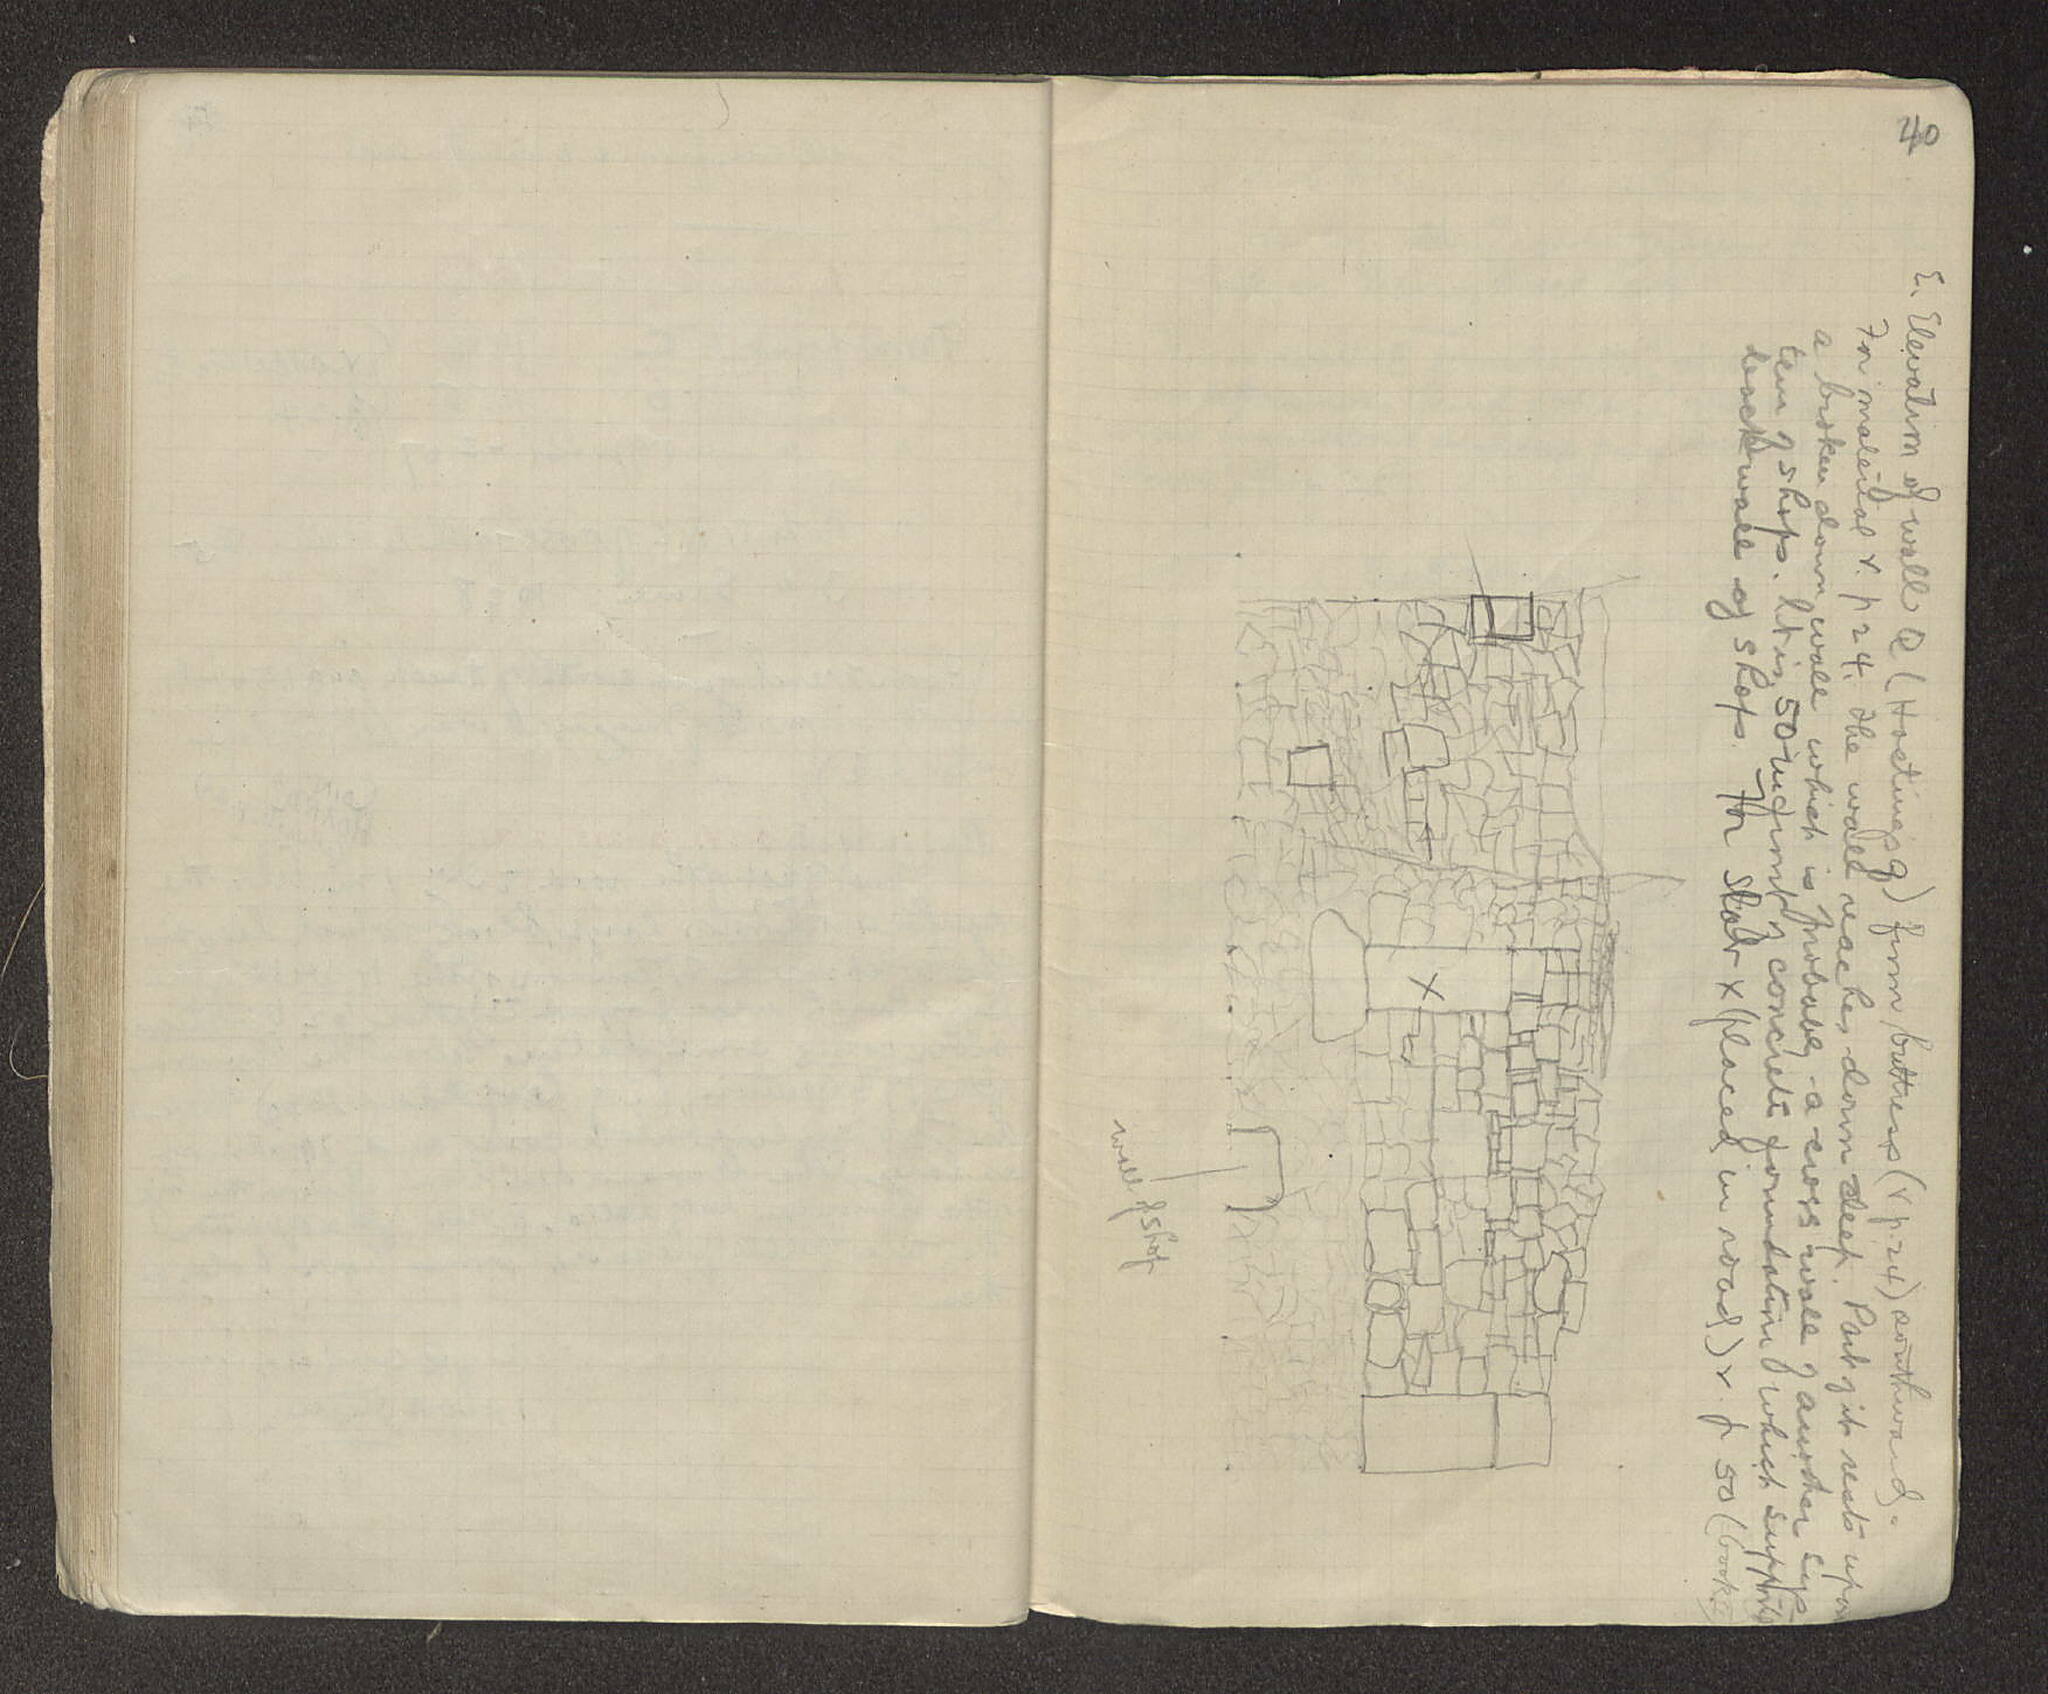 40
E. Elevation of wall Q (Hastings q) from buttress (v p. 24) southward.
For material v. p 24. The wall reaches down deep. Part of it rests upon
a broken down wall which is probably a cross wall of another sys-
tem of shops. It is 50 in front of concrete foundation which supports
back wall of shops. For slab x (placed in road) v. p 50 (book
X
wall of shop